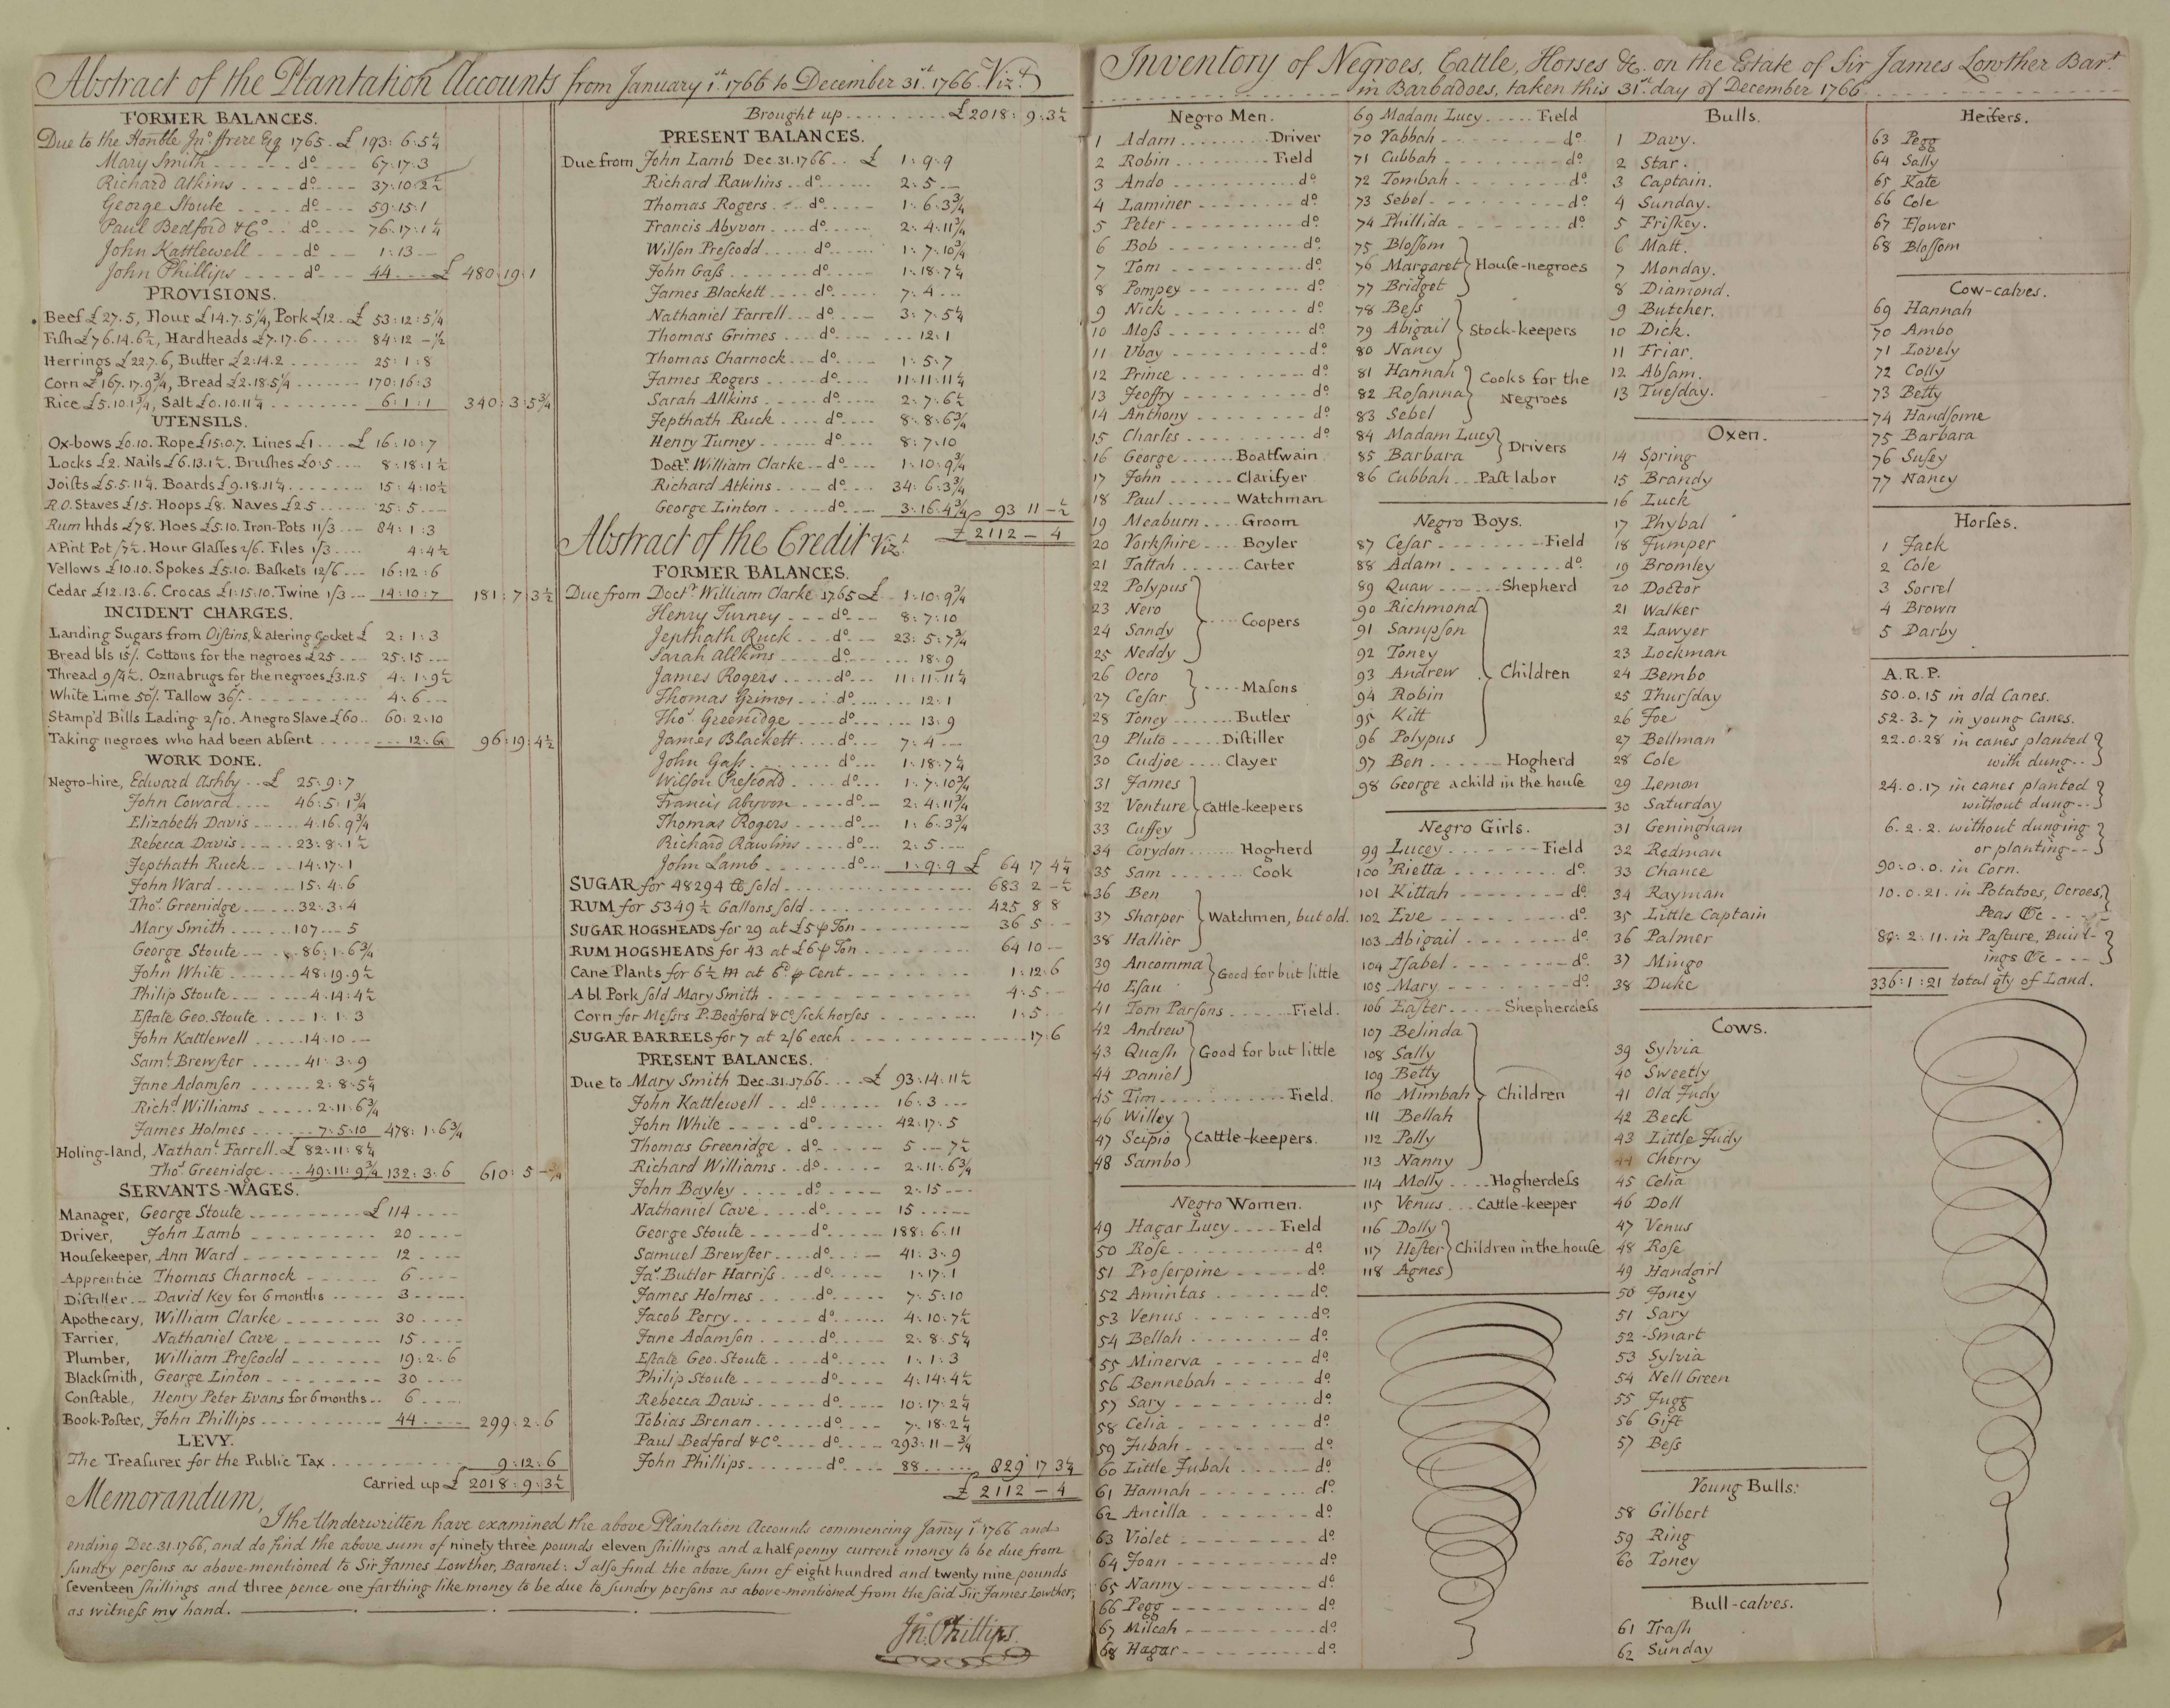 Abstract of the Plantation Accounts from January 1st. 1766 to December 31st. 1766. Vizt.
FORMER BALANCES.
Due to the Honble Jno. Frere Esq 1765. £ 193: 6: 5¼
Mary Smith do. 67: 17: 3
Richard Atkins do. 37: 10: 2½
George Stoute do. 59: 15: 1
Paul Bedford & Co. do. 76: 17: 1¼
John Kattlewell do. 1: 13
John Phillips do. 44 £ 480: 19: 1
PROVISIONS.
Beef £27.5, Flour £14.7.5¼, Pork £12. £ 53: 12: 5¼
Fish £76.14.6½, Hardheads £7.17.6 84: 12 - ½
Herrings £22.7.6, Butter £2.14.2 25: 1: 8
Corn £167.17.9¾, Bread £2.18.5¼ 170: 16: 3
Rice £5.10.1¾, Salt £0.10.11¼ 6: 1: 1 340: 3: 5¾
UTENSILS.
Ox-bows £0.10. Rope £15.0.7. Lines £1 £ 16: 10: 7
Locks £2. Nails £6.13.1½. Brushes £0:5 8: 18: 1½
Joists £5.5.11¼. Boards £9.18.11¼ 15: 4: 10½
R.O. Staves £15. Hoops £8. Naves £2.5 25: 5
Rum hhds £78. Hoes £5.10. Iron-Pots 11/3 84: 1: 3
A Pint Pot /7½. Hour Glasses 2/6. Files 1/3 4: 4½
Vellows £10.10. Spokes £5.10. Baskets 12/6 16: 12: 6
Cedar £12.13.6. Crocas £1.15.10. Twine 1/3 14: 10: 7 181: 7: 3½
INCIDENT CHARGES.
Landing Sugars from Oistins, & atering Cocket £ 2: 1: 3
Bread bls 15/. Cottons for the negroes £25 25: 15
Thread 9/4½. Oznabrugs for the negroes £3.12.5 4: 1: 9½
White Lime 50/. Tallow 36/. 4: 6
Stamp'd Bills Lading 2/10. A negro Slave £60 60: 2: 10
Taking negroes who had been absent 12: 6 96: 19: 4½
WORK DONE.
Negro-hire, Edward Ashby £ 25: 9: 7
John Coward 46: 5: 1¾
Elizabeth Davis 4: 16: 9¾
Rebecca Davis 23: 8: 1½
Jepthath Ruck 14: 17: 1
John Ward 15: 4: 6
Thos. Greenidge 32: 3: 4
Mary Smith 107 5
George Stoute 86: 1: 6¾
John White 48: 19: 9½
Philip Stoute 4: 14: 4½
Estate Geo. Stoute 1: 1: 3
John Kattlewell 14: 10
Saml. Brewster 41: 3: 9
Jane Adamson 2: 8: 5¼
Richd. Williams 2: 11: 6¾
James Holmes 7: 5: 10 478: 1: 6¾
Holing-land, Nathanl. Farrell £ 82: 11: 8¼
Thos. Greenidge 49: 11: 9¾ 132: 3: 6 610: 5 - ¾
SERVANTS-WAGES.
Manager, George Stoute £ 114
Driver, John Lamb 20
Housekeeper, Ann Ward 12
Apprentice Thomas Charnock 6
Distiller David Key for 6 months 3
Apothecary, William Clarke 30
Farrier, Nathaniel Cave 15
Plumber, William Prescodd 19: 2: 6
Blacksmith, George Linton 30
Constable, Henry Peter Evans for 6 months 6
Book-Poster, John Phillips 44 299: 2: 6
LEVY.
The Treasurer for the Public Tax 9: 12: 6
Carried up £ 2018: 9: 3½
Brought up £ 2018: 9: 3½
PRESENT BALANCES.
Due from John Lamb Dec. 31. 1766 £ 1: 9: 9
Richard Rawlins do. 2: 5
Thomas Rogers do. 1: 6: 3¾
Francis Abyvon do. 2: 4: 11¾
Wilson Prescodd do. 1: 7: 10¾
John Gass do. 1: 18: 7¼
James Blackett do. 7: 4
Nathaniel Farrell do. 3: 7: 5¼
Thomas Grimes do. 12: 1
Thomas Charnock do. 1: 5: 7
James Rogers do. 11: 11: 11¼
Sarah Allkins do. 2: 7: 6½
Jepthath Ruck do. 8: 8: 6¾
Henry Turney do. 8: 7: 10
Doctr. William Clarke do. 1: 10: 9¾
Richard Atkins do. 34: 6: 3¾
George Linton do. 3: 16: 4¾ 93 11 - ½
£ 2112 - 4
Abstract of the Credit Vizt.
FORMER BALANCES.
Due from Doctr. William Clarke 1765 £ 1: 10: 9¾
Henry Turney do. 8: 7: 10
Jepthath Ruck do. 23: 5: 7¾
Sarah Allkins do. 18: 9
James Rogers do. 11: 11: 11¼
Thomas Grimes do. 12: 1
Thos. Greenidge do. 13: 9
James Blackett do. 7: 4
John Gass do. 1: 18: 7¼
Wilson Prescodd do. 1: 7: 10¾
Francis Abyvon do. 2: 4: 11¾
Thomas Rogers do. 1: 6: 3¾
Richard Rawlins do. 2: 5
John Lamb do. 1: 9: 9 £ 64 17 4¼
SUGAR for 48294 lb sold 683 2 - ½
RUM for 5349½ Gallons sold 425 8 8
SUGAR HOGSHEADS for 29 at £5 ⅌ Ton 36 5
RUM HOGSHEADS for 43 at £6 ⅌ Ton 64 10
Cane Plants for 6½ M at 6d. ⅌ Cent 1: 12: 6
A bl. Pork sold Mary Smith 4: 5
Corn for Messrs P. Bedford & Co. sick horses 1: 5
SUGAR BARRELS for 7 at 2/6 each 17: 6
PRESENT BALANCES.
Due to Mary Smith Dec. 31. 1766 £ 93: 14: 11½
John Kattlewell do. 16: 3
John White do. 42: 17: 5
Thomas Greenidge do. 5 - 7½
Richard Williams do. 2: 11: 6¾
John Bayley do. 2: 15
Nathaniel Cave do. 15
George Stoute do. 188: 6: 11
Samuel Brewster do. 41: 3: 9
Jas. Butler Harriss do. 1: 17: 1
James Holmes do. 7: 5: 10
Jacob Perry do. 4: 10: 7½
Jane Adamson do. 2: 8: 5¼
Estate Geo. Stoute do. 1: 1: 3
Philip Stoute do. 4: 14: 4½
Rebecca Davis do. 10: 17: 2¼
Tobias Brenan do. 7: 18: 2¼
Paul Bedford & Co. do. 293: 11 - ¾
John Phillips do. 88 829 17 3¼
£ 2112 - 4
Memorandum,
I the Underwritten have examined the above Plantation Accounts commencing Janry 1st 1766 and
ending Dec. 31. 1766, and do find the above sum of ninety three pounds eleven shillings and a half penny current money to be due from
sundry persons as above-mentioned to Sir James Lowther, Baronet: I also find the above sum of eight hundred and twenty nine pounds
seventeen shillings and three pence one farthing like money to be due to sundry persons as above-mentioned from the said Sir James Lowther,
as witness my hand.
Jno. Phillips.
Inventory of Negroes, Cattle, Horses &c. on the Estate of Sir James Lowther Bart.
in Barbadoes, taken this 31st. day of December 1766
Negro Men.
1 Adam Driver
2 Robin Field
3 Ando do.
4 Laminer do.
5 Peter do.
6 Bob do.
7 Tom do.
8 Pompey do.
9 Nick do.
10 Moss do.
11 Ubay do.
12 Prince do.
13 Jeoffry do.
14 Anthony do.
15 Charles do.
16 George Boatswain
17 John Clarifyer
18 Paul Watchman
19 Meaburn Groom
20 Yorkshire Boyler
21 Tattah Carter
22 Polypus
23 Nero
24 Sandy Coopers
25 Neddy
26 Ocro
27 Cesar Masons
28 Toney Butler
29 Pluto Distiller
30 Cudjoe Clayer
31 James
32 Venture Cattle-keepers
33 Cuffey
34 Corydon Hogherd
35 Sam Cook
36 Ben
37 Sharper Watchmen, but old.
38 Hallier
39 Ancomma
40 Esau Good for but little
41 Tom Parsons Field.
42 Andrew
43 Quash Good for but little
44 Daniel
45 Tim Field.
46 Willey
47 Scipio Cattle-keepers.
48 Sambo
Negro Women.
49 Hagar Lucy Field
50 Rose do.
51 Proserpine do.
52 Amintas do.
53 Venus do.
54 Bellah do.
55 Minerva do.
56 Bennebah do.
57 Sary do.
58 Celia do.
59 Jubah do.
60 Little Jubah do.
61 Hannah do.
62 Ancilla do.
63 Violet do.
64 Joan do.
65 Nanny do.
66 Pegg do.
67 Milcah do.
68 Hagar do.
69 Madam Lucy Field
70 Yabbah do.
71 Cubbah do.
72 Tombah do.
73 Sebel do.
74 Phillida do.
75 Blossom
76 Margaret House-negroes
77 Bridget
78 Bess
79 Abigail Stock-keepers
80 Nancy
81 Hannah Cooks for the
82 Rosanna Negroes
83 Sebel
84 Madam Lucy
85 Barbara Drivers
86 Cubbah Past labor
Negro Boys.
87 Cesar Field
88 Adam do.
89 Quaw Shepherd
90 Richmond
91 Sampson
92 Toney
93 Andrew Children
94 Robin
95 Kitt
96 Polypus
97 Ben Hogherd
98 George a child in the house
Negro Girls.
99 Lucey Field
100 'Rietta do.
101 Kittah do.
102 Eve do.
103 Abigail do.
104 Isabel do.
105 Mary do.
106 Easter Shepherdess
107 Belinda
108 Sally
109 Betty
110 Mimbah Children
111 Bellah
112 Polly
113 Nanny
114 Molly Hogherdess
115 Venus Cattle-keeper
116 Dolly
117 Hester Children in the house
118 Agnes
Bulls.
1 Davy.
2 Star.
3 Captain.
4 Sunday.
5 Friskey.
6 Matt.
7 Monday.
8 Diamond.
9 Butcher.
10 Dick.
11 Friar.
12 Absam.
13 Tuesday.
Oxen.
14 Spring
15 Brandy
16 Luck
17 Phybal
18 Jumper
19 Bromley
20 Doctor
21 Walker
22 Lawyer
23 Lockman
24 Bembo
25 Thursday
26 Joe
27 Bellman
28 Cole
29 Lemon
30 Saturday
31 Geningham
32 Redman
33 Chance
34 Rayman
35 Little Captain
36 Palmer
37 Mingo
38 Duke
Cows.
39 Sylvia
40 Sweetly
41 Old Judy
42 Beck
43 Little Judy
44 Cherry
45 Celia
46 Doll
47 Venus
48 Rose
49 Handgirl
50 Joney
51 Sary
52 Smart
53 Sylvia
54 Nell Green
55 Jugg
56 Gift
57 Bess
Young Bulls:
58 Gilbert
59 Ring
60 Toney
Bull-calves.
61 Trash
62 Sunday
Heifers.
63 Pegg
64 Sally
65 Kate
66 Cole
67 Flower
68 Blossom
Cow-calves.
69 Hannah
70 Ambo
71 Lovely
72 Colly
73 Betty
74 Handsome
75 Barbara
76 Susey
77 Nancy
Horses.
1 Jack
2 Cole
3 Sorrel
4 Brown
5 Darby
A. R. P.
50. 0. 15 in old Canes.
52. 3. 7 in young Canes.
22. 0. 28 in canes planted
with dung
24. 0. 17 in canes planted
without dung
6. 2. 2. without dunging
or planting
90. 0. 0. in Corn.
10. 0. 21. in Potatoes, Ocroes,
Peas &c
2. 11. in Pasture, Build-
ings &c
336: 1: 21 total qty of Land.